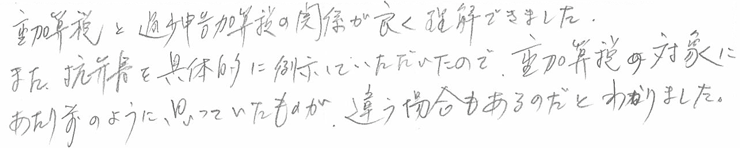 重加算税と過少申告加算税の関係が良く理解できました。
また、抗弁書を具体的に例示していただいたので、重加算税の対象に
あたり前のように思っていたものが、違う場合もあるのだとわかりました。